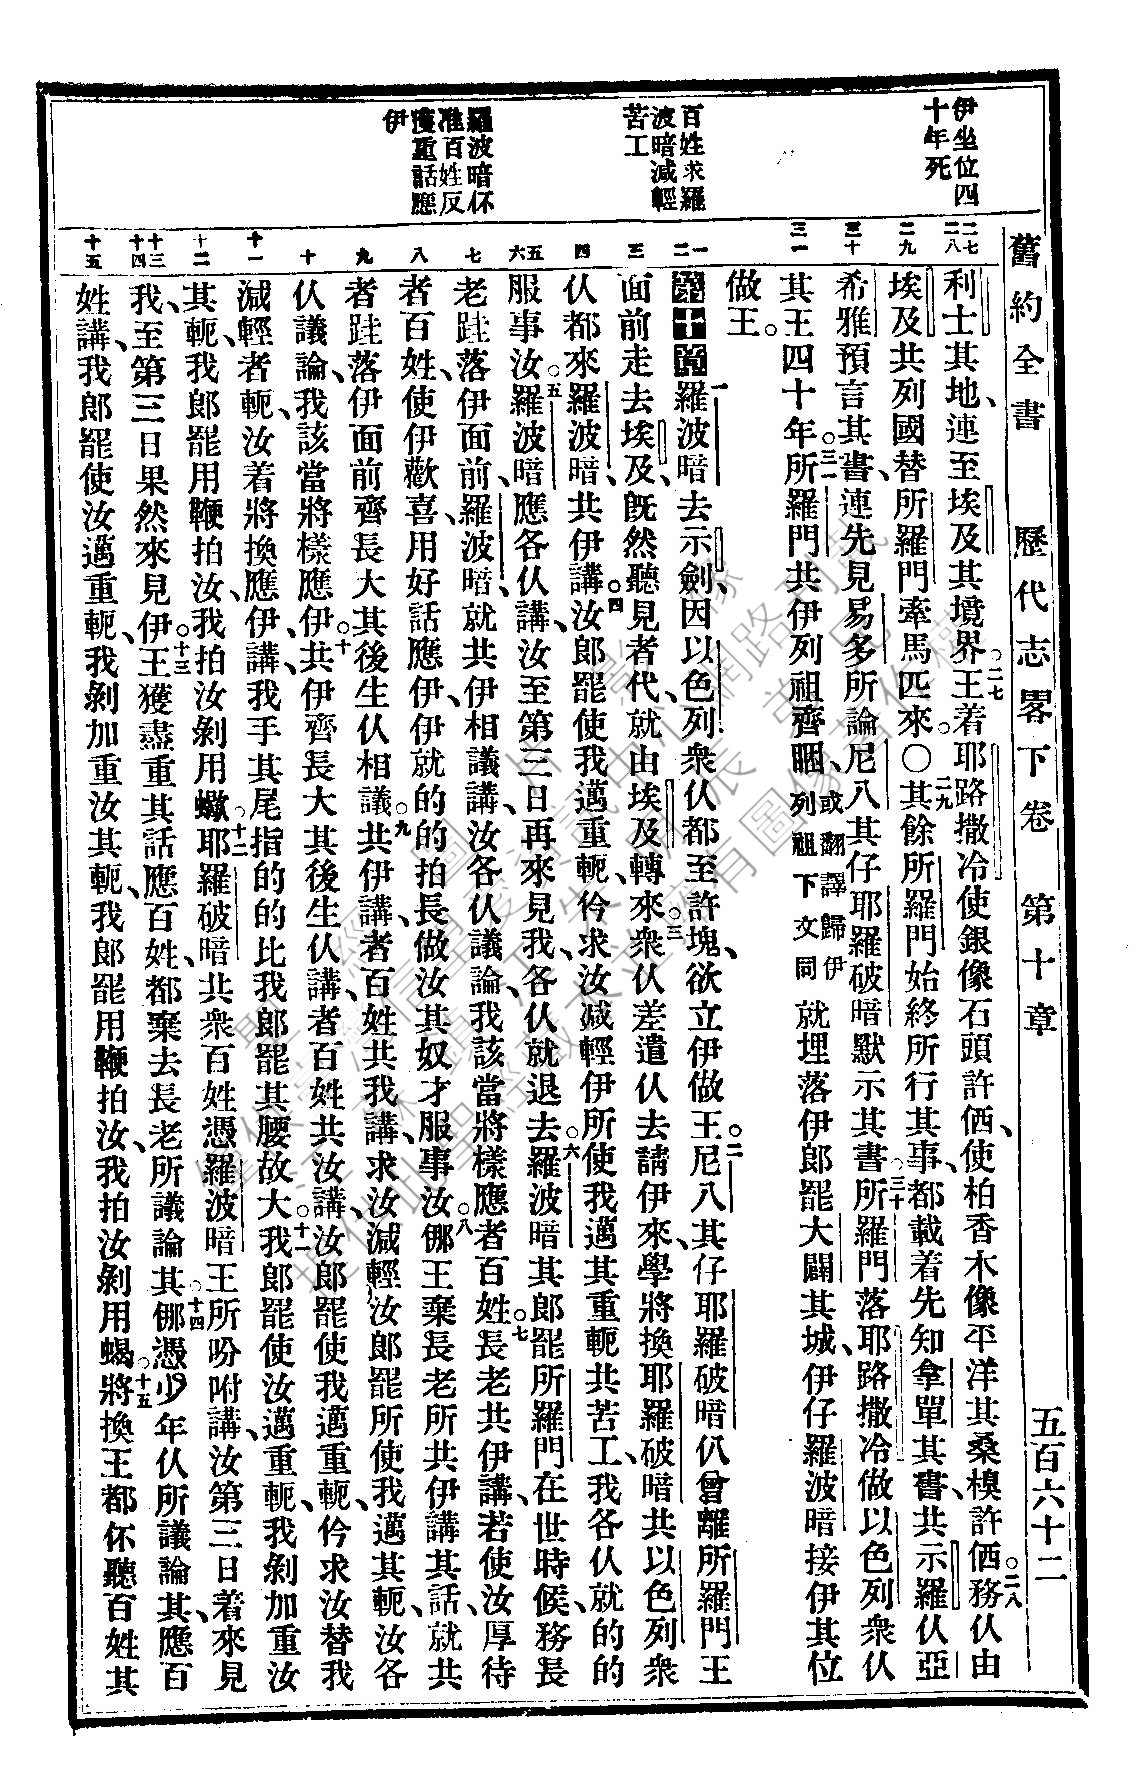 舊約全書 歷代志畧下卷 第十章 五百六十二
伊坐位四
十年死
百姓求羅
波暗減輕
苦工
羅波暗伓
准百姓反
獲重話應
伊
二七
二八
二九
三十
三一
一
二
三
四
五
六
七
八
九
十
十一
十二
十三
十四
十五
利士其地、連至埃及其境界。二七王着耶路撒冷使銀像石頭許俻、使柏香木像平洋其桑模許俻。二八務仈由
埃及共列國、替所羅門牽馬匹來。〇二九其餘所羅門始終所行其事、都載着先知拿單其書、共示羅仈亞
希雅預言其書、連先見易多所論尼八其仔耶羅破暗默示其書。三十所羅門落耶路撒冷做以色列衆仈
其王四十年。三一所羅門共伊列祖齊睏、或翻譯歸伊列祖下文同就埋落伊郎罷大闢其城、伊仔羅波暗接伊其位
做王。
第十章一羅波暗去示劍、因以色列衆仈都至許塊、欲立伊做王。二尼八其仔耶羅破暗仈曾離所羅門王
面前走去埃及、旣然聽見者代、就由埃及轉來。三衆仈差遣仈去請伊來、學將換耶羅破暗共以色列衆
仈都來羅波暗、共伊講、四汝郎罷使我邁重軛、仱求汝減輕伊所使我邁其重軛共苦工、我各仈就的的
服事汝。五羅波暗應各仈講、汝至第三日再來見我、各仈就退去。六羅波暗其郎罷所羅門在世時候、務長
老跬落伊面前、羅波暗就共伊相議講、汝各仈議論、我該當將樣應者百姓。七長老共伊講、若使汝厚待
者百姓、使伊歡喜、用好話應伊、伊就的的拍長做汝其奴才服事汝。八㑚王棄長老所共伊講其話、就共
者跬落伊面前齊長大其後生仈相議。九共伊講、者百姓共我講、求汝減輕汝郎罷所使我邁其軛、汝各
仈議論、我該當將樣應伊。十共伊齊長大其後生仈講、者百姓共汝講、汝郎罷使我邁重軛、仱求汝替我
減輕者軛、汝着將換應伊講、我手其尾指的的比我郎罷其腰故大。十一我郎罷使汝邁重軛、我剝加重汝
其軛、我郎罷用鞭拍汝、我拍汝剝用蠍。十二耶羅破暗共衆百姓憑羅波暗王所吩咐講、汝第三日着來見
我、至第三日果然來見伊。十三王獲盡重其話應百姓、都棄去長老所議論其。十四㑚憑少年仈所議論其、應百
姓講、我郎罷使汝邁重軛、我剝加重汝其軛、我郎罷用鞭拍汝、我拍汝剝用蝎。十五將換王都伓聽百姓其